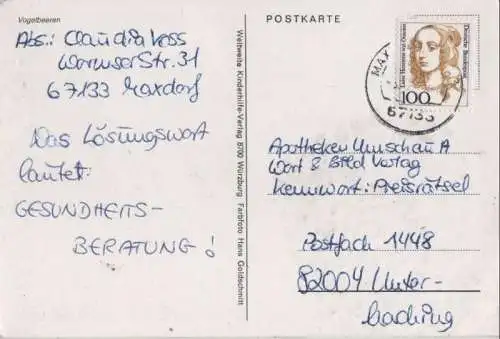 Vogelbeeren
Abs.: Claudia Voss
Wormser Str. 31
67133 Maxdorf
Das Lösungswort
lautet:
GESUNDHEITS-
BERATUNG!
Weltweite Kinderhilfe-Verlag 8700 Würzburg Farbfoto Hans Goldschmitt
POSTKARTE
MAX
67133
Deutsche Bundespost
Luise Henriette von Oranien
100
Apotheken Umschau A
Wort & Bild Verlag
Kennwort: Preisrätsel
Postfach 1448
82004 Unter-
haching